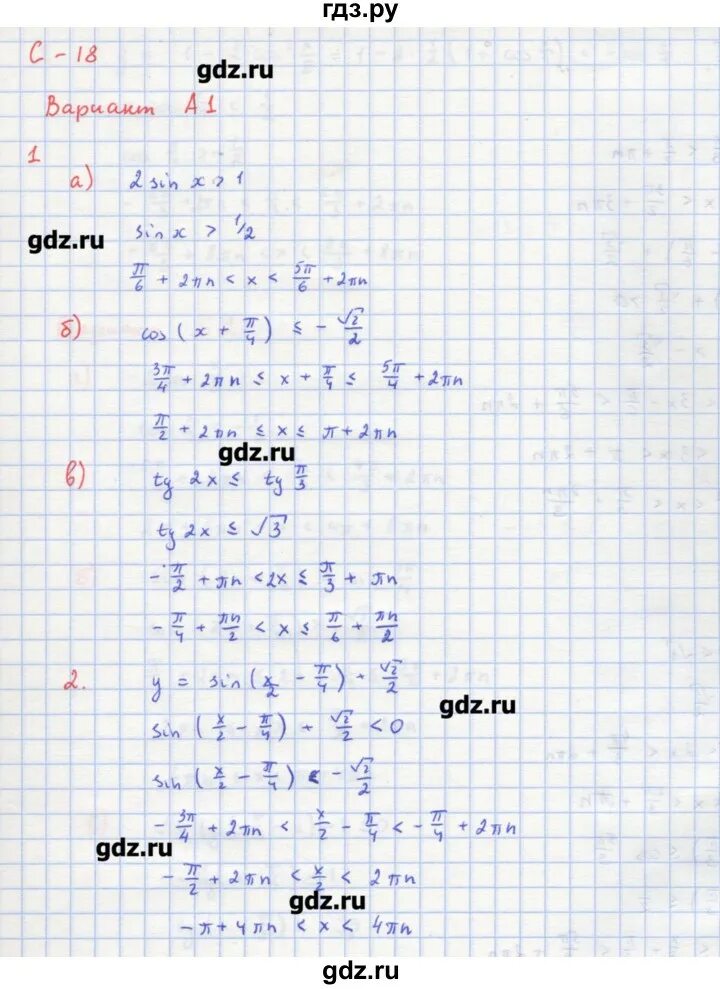 гдз.ру
С - 18
gdz.ru
Вариант А1
1
а) 2 sin x > 1
gdz.ru
sin x > 1/2
π/6 + 2πn < x < 5π/6 + 2πn
б) cos(x + π/4) ≤ - √2/2
3π/4 + 2πn ≤ x + π/4 ≤ 5π/4 + 2πn
π/2 + 2πn ≤ x ≤ π + 2πn
gdz.ru
в) tg 2x ≤ tg π/3
tg 2x ≤ √3
- π/2 + πn < 2x ≤ π/3 + πn
- π/4 + πn/2 < x ≤ π/6 + πn/2
2. y = sin(x/2 - π/4) + √2/2
gdz.ru
sin(x/2 - π/4) + √2/2 < 0
sin(x/2 - π/4) < - √2/2
- 3π/4 + 2πn < x/2 - π/4 < - π/4 + 2πn
gdz.ru
- π/2 + 2πn < x/2 < 2πn
gdz.ru
- π + 4πn < x < 4πn
gdz.ru